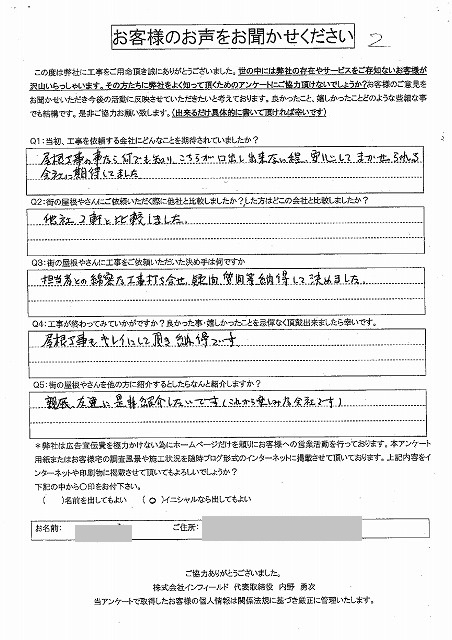 お客様のお声をお聞かせください 2
この度は弊社に工事をご用命頂き誠にありがとうございました。世の中には弊社の存在やサービスをご存知ないお客様が
沢山いらっしゃいます。その方たちに弊社をよく知って頂くためのアンケートにご協力頂けないでしょうか?お客様のご意見を
お聞かせいただき今後の活動に反映させていただきたいと考えております。良かったこと、嬉しかったことどのような些細な事
でも結構です。是非ご協力お願い致します。(出来るだけ具体的に書いて頂ければ幸いです)
Q1:当初、工事を依頼する会社にどんなことを期待されていましたか?
屋根工事の事なら何でも知り、こちらが口出し出来ない程、安心してまかせられる
会社に期待してました
Q2:街の屋根やさんにご依頼いただく際に他社と比較しましたか?した方はどこの会社と比較しましたか?
他社2軒と比較しました。
Q3:街の屋根やさんに工事をご依頼いただいた決め手は何ですか
担当者との綿密な工事打ち合せ、疑問、質問等納得して決めました。
Q4:工事が終わってみていかがですか?良かった事・嬉しかったことを忌憚なく頂戴出来ましたら幸いです。
屋根工事もキレイにして頂き納得です
Q5:街の屋根やさんを他の方に紹介するとしたらなんと紹介しますか?
親戚、友達に是非紹介したいです(これから楽しみな会社です)
*弊社は広告宣伝費を極力かけない為にホームページだけを頼りにお客様への営業活動を行っております。本アンケート
用紙またはお客様宅の調査風景や施工状況を随時ブログ形式のインターネットに掲載させて頂いております。上記内容をイ
ンターネットや印刷物に掲載させて頂いてもよろしいでしょうか?
下記の中から〇印をお付下さい。
( )名前を出してもよい ( ○ )イニシャルなら出してもよい
お名前: ご住所:
ご協力ありがとうございました。
株式会社インフィールド 代表取締役 内野 勇次
当アンケートで取得したお客様の個人情報は関係法規に基づき厳正に管理いたします。